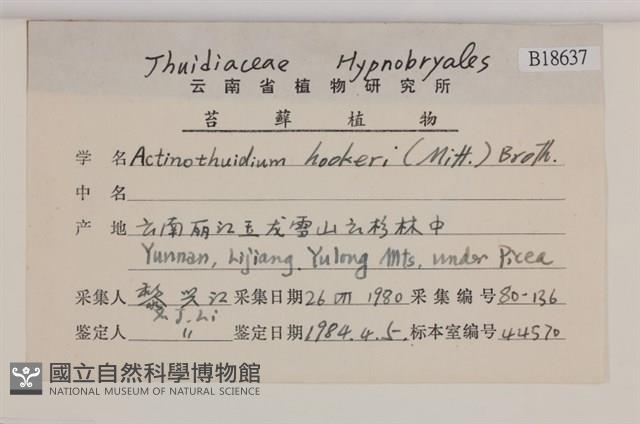 Thuidiaceae Hypnobryales
B18637
云南省植物研究所
苔藓植物
学名 Actinothuidium hookeri (Mitt.) Broth.
中名
产地 云南丽江玉龙雪山云杉林中
Yunnan, Lijiang. Yulong Mts. under Picea
采集人 黎兴江 采集日期 26 VII 1980 采集编号 80-136
X.J. Li
鉴定人 〃 鉴定日期 1984.4.5. 标本室编号 44570
國立自然科學博物館
NATIONAL MUSEUM OF NATURAL SCIENCE